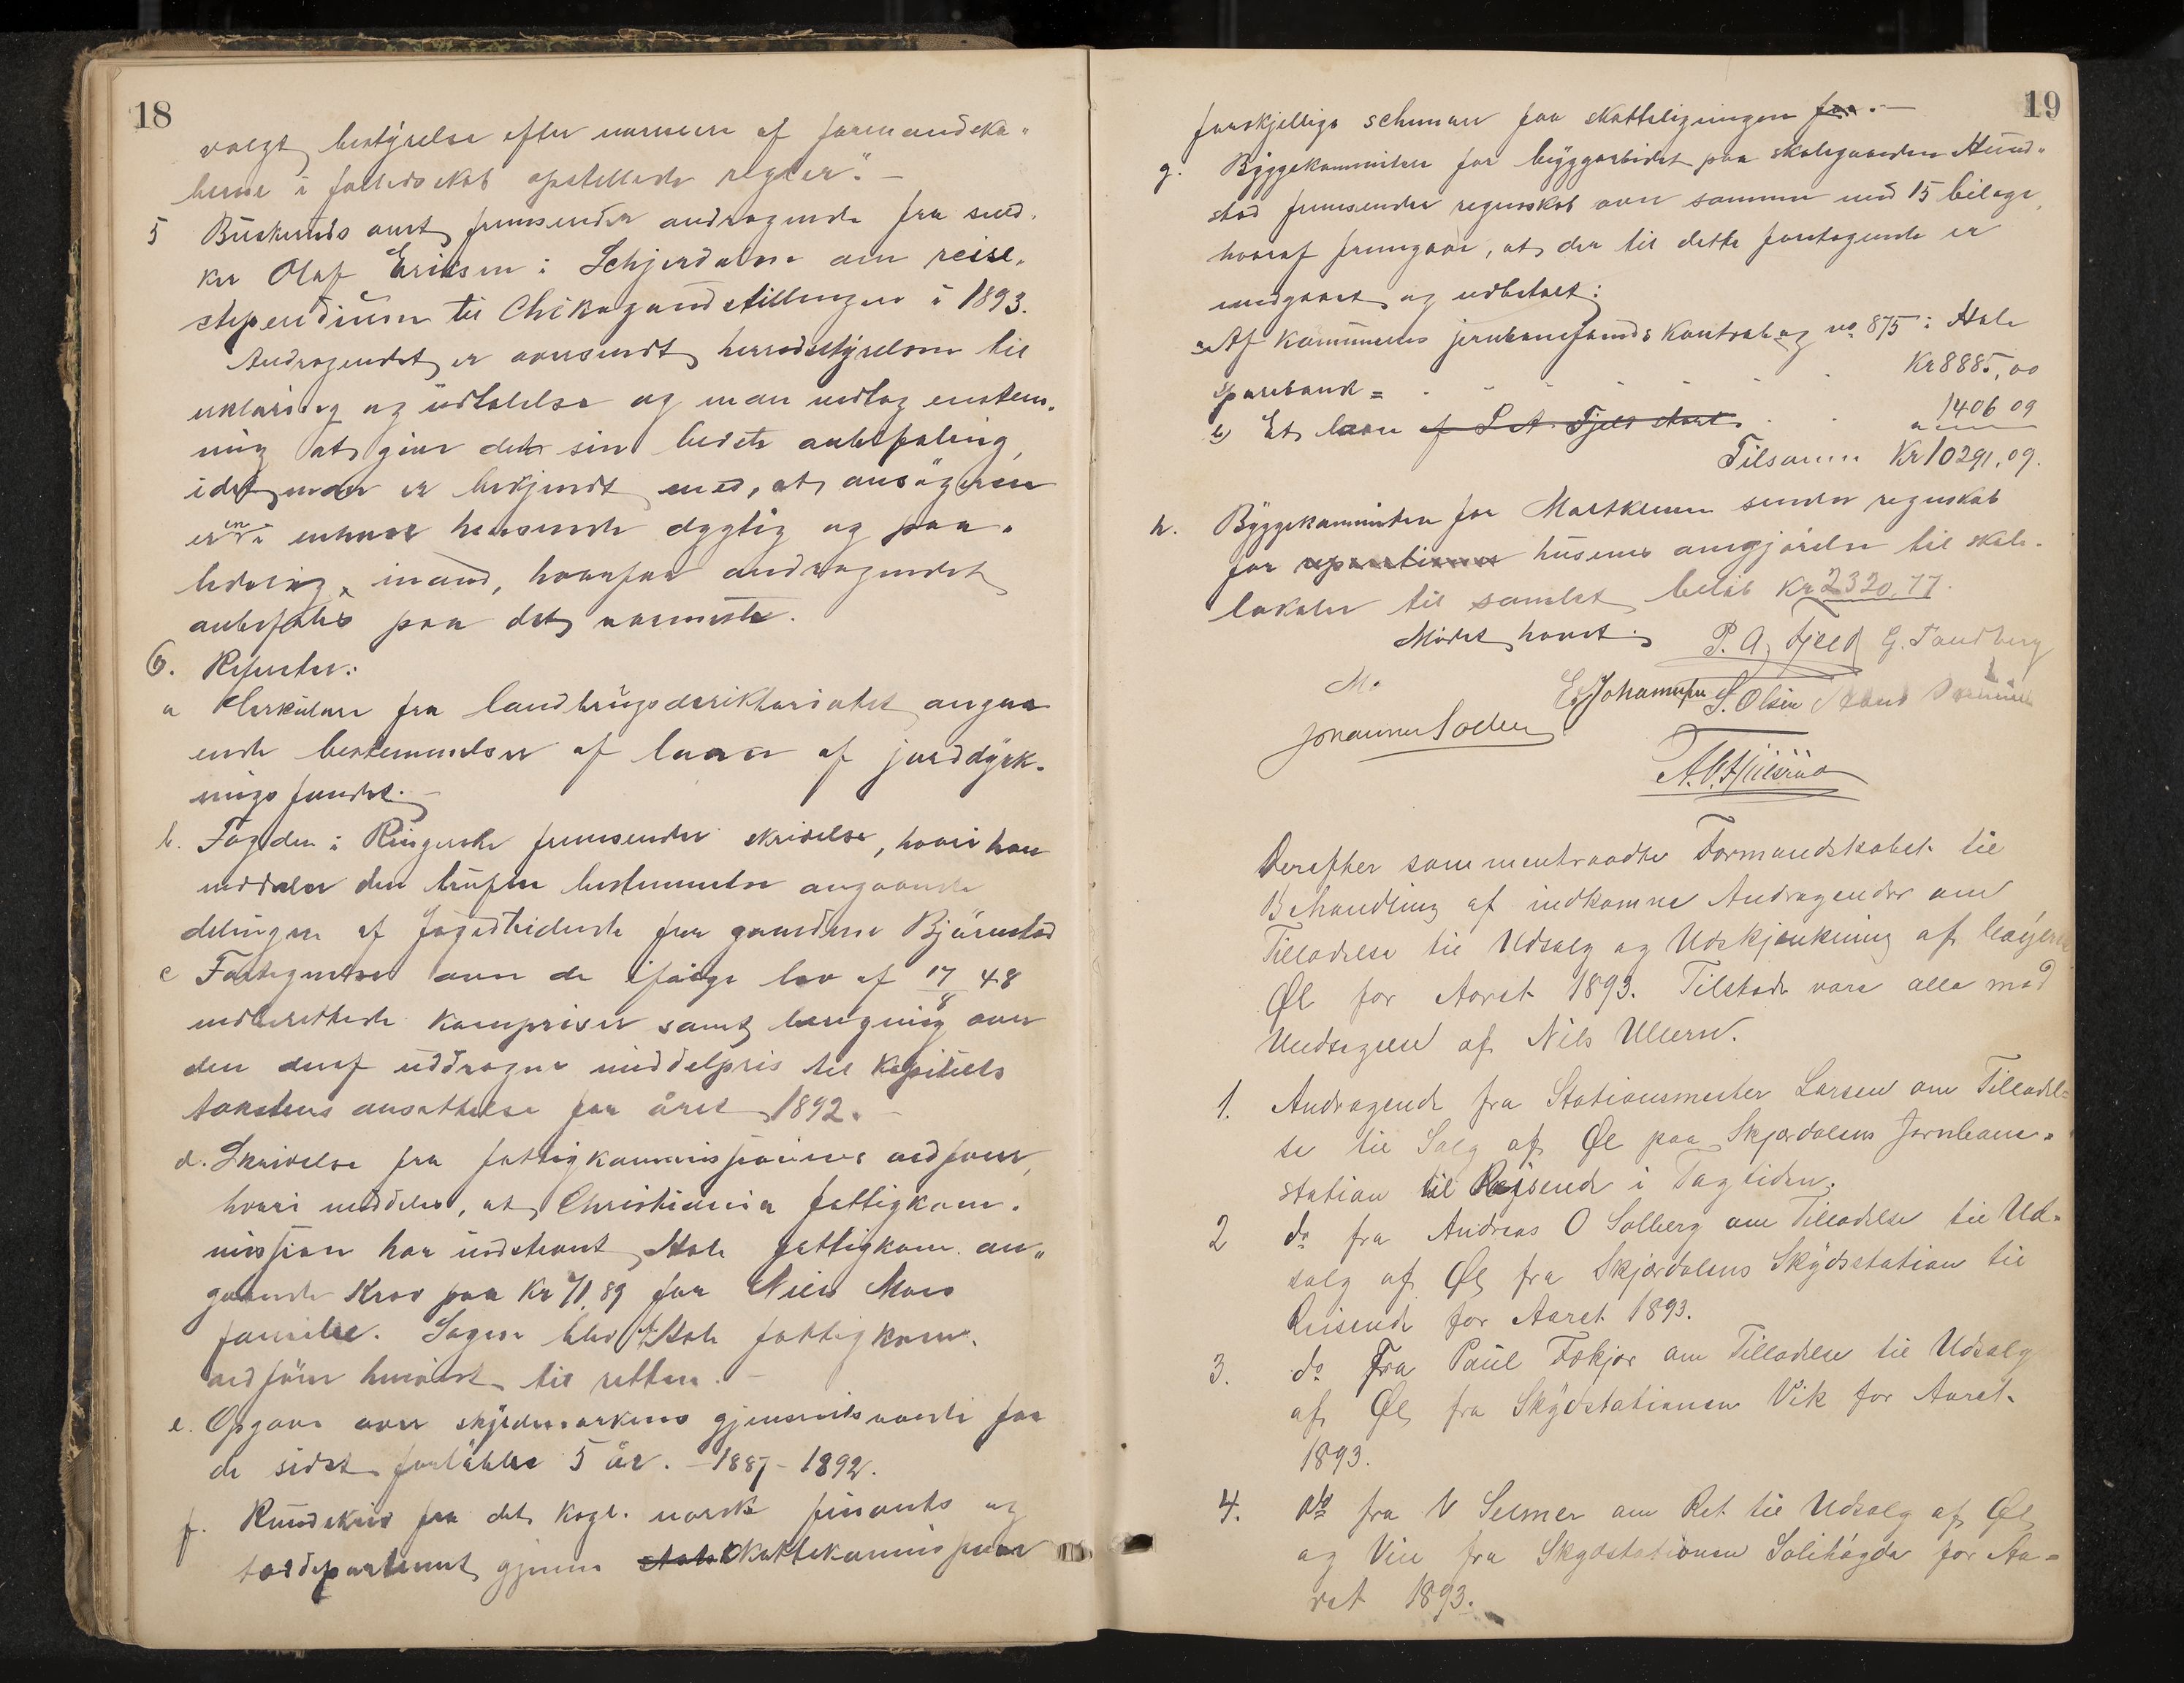 18
valgt bestyrelse efter normerne af formandska-
berne i fælledsskab opstillede regler". —
5 Buskeruds amt fremsender andragende fra sned-
ker Olaf Eriksen i Schjerdalen om reise-
stipendium til Chikagoudstillingen i 1893.
Andragendet er oversendt herredsstyrelsen til
erklæring og udtalelse og man vedtog enstem-
mig at give det sin bedste anbefaling,
idet man er bekjendt med, at ansøgeren
er en i enhver henseende dygtig og paa-
lidelig mand, hvorfor andragendet
anbefales paa det varmeste.
6. Referater:
a Cirkulære fra landbrugsdirektoriatet angaa
ende bestemmelser af laan af jorddyrk-
ningsfondet. —
b. Fogden i Ringerike fremsender skrivelse, hvori han
meddeler den trufne bestemmelse angaaende
delingen af jagttidende fra gaardene Bjørnstad
c Fortegnelse over de ifølge lov af 17/8 48
indberettede kornpriser samt beregning over
den deraf uddragne middelpris til kapitels
takstens ansættelse for året 1892. —
d. Skrivelse fra fattigkommissionens ordfører,
hvori meddeles, at Christiania fattigkom-
mission har indstevnt Hole fattigkom. an-
gaaende krav paa kr 71,89 for Niels Moes
familie. Sagen blev af Hole fattigkom.
ordfører henvist til retten. —
e. Opgave over skyldmarkens gjennemsnitsværdi for
de sidst forløbne 5 år. — 1887 - 1892.
f. Rundskriv fra det kogl. norske finants og
tolddepartement gjennem skattekommissionen
19
forskjellige schemaer for skatteligningen for. —
g. Byggekommiteen for byggearbeidet paa skolegaarden Hund-
stad fremsender regnskab over samme med 15 bilage,
hvoraf fremgaar, at der til dette foretagende er
medgaaet og udbetalt:
a Af kommunens jernbanefonds kontrabog no 875 i Hole
sparebank = . . . . . . Kr 8885,00
b) Et laan af P A. Fjeld stort . . " 1406 09
Tilsammen Kr 10291,09.
h. Byggekommiteen for Moetkumen sender regnskab
for reparationen husenes omgjørelse til skole-
lokaler til samlet beløb Kr 2320,77.
Mødet hævet.
P. A. Fjeld G. Sandberg
E. Johannesen S. Olsen
Johannes Sollien
Derefter sammentraadte Formandskabet til
Behandling af indkomne Andragender om
Tilladelse til Udsalg og Udskjænkning af bayersk
Øl for Aaret 1893. Tilstede vare alle med
Undtagelse af Nils Ullern.
1. Andragende fra Stationsmester Larsen om Tilladel-
se til Salg af Øl paa Skjærdalens Jernbane-
station til Reisende i Togtiden.
2 do fra Andreas O Solberg om Tilladelse til Ud-
salg af Øl fra Skjærdalens Skydsstation til
Reisende for Aaret 1893.
3. do Fra Paul Fekjær om Tilladelse til Udsalg
af Øl fra Skydsstationen Vik for Aaret
1893.
4. do fra V Selmer om Ret til Udsalg af Øl
og Vin fra Skydsstationen Solihøgda for Aa-
ret 1893.